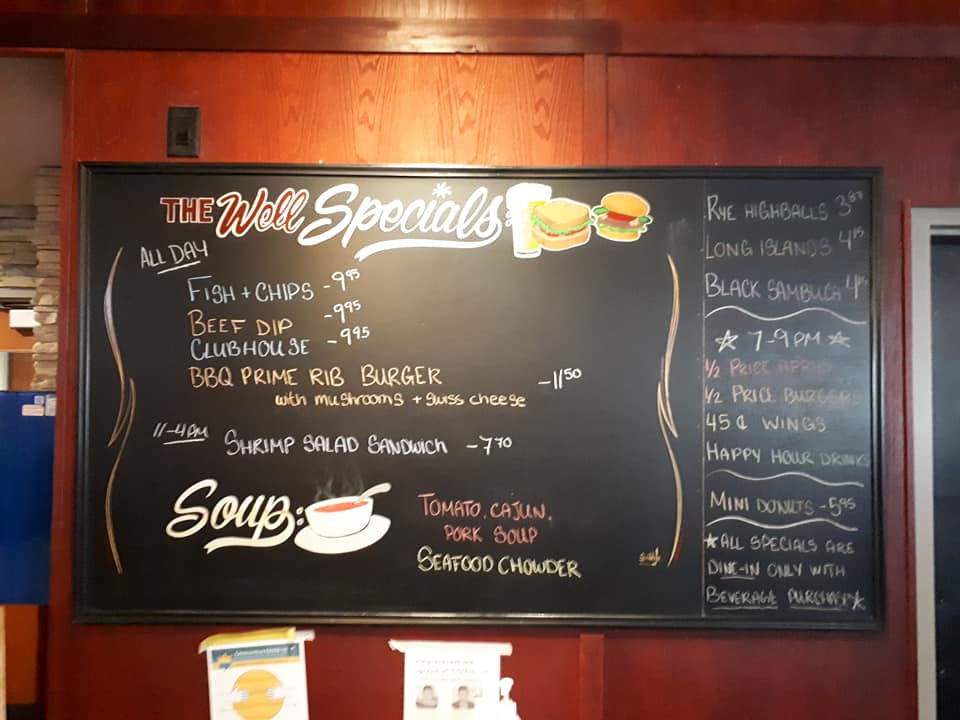 THE Well Specials
ALL DAY
FISH + CHIPS - 9.95
BEEF DIP - 9.95
CLUBHOUSE - 9.95
BBQ PRIME RIB BURGER - 11.50
with mushrooms + swiss cheese
11-4PM SHRIMP SALAD SANDWICH - 7.70
Soup:
TOMATO, CAJUN,
PORK SOUP
SEAFOOD CHOWDER
RYE HIGHBALLS 3.87
LONG ISLANDS 4.15
BLACK SAMBUCA
7-9PM
1/2 PRICE
1/2 PRICE BURGERS
45¢ WINGS
HAPPY HOUR DRINKS
MINI DONUTS - 5.95
*ALL SPECIALS ARE
DINE-IN ONLY WITH
BEVERAGE PURCHASE*